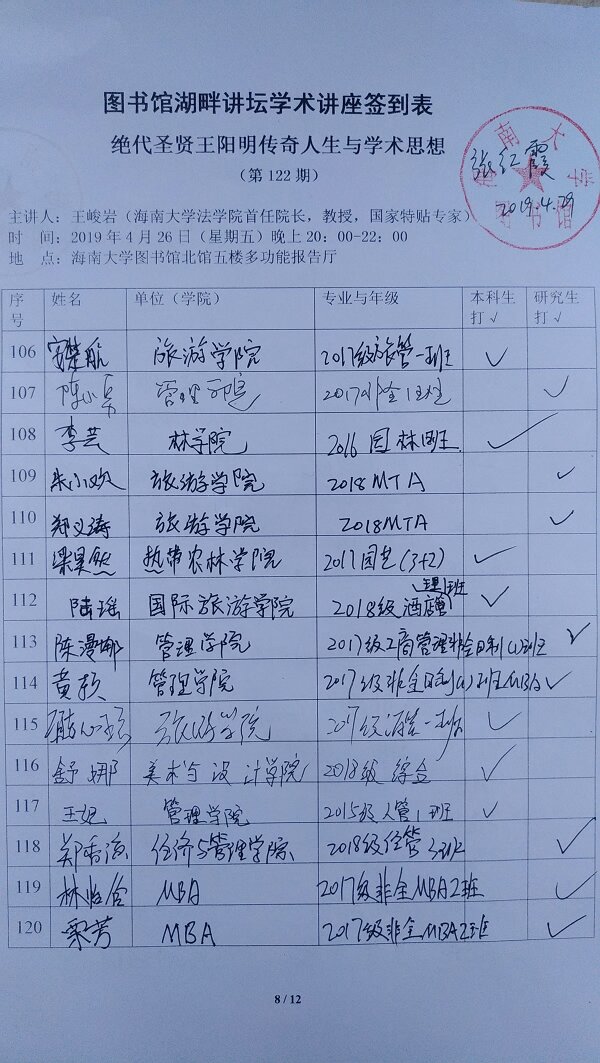 图书馆湖畔讲坛学术讲座签到表
绝代圣贤王阳明传奇人生与学术思想
（第 122 期）
张红霞
2019.4.29
主讲人：王峻岩（海南大学法学院首任院长，教授，国家特贴专家）
时 间：2019 年 4 月 26 日（星期五）晚上 20：00-22：00
地 点：海南大学图书馆北馆五楼多功能报告厅
序号 姓名 单位（学院） 专业与年级 本科生打√ 研究生打√
106 旅游学院 2017级旅管一班 √
107 管理学院 √
108 李芸 林学院 2016 园林四班 √
109 朱小欢 旅游学院 2018MTA √
110 郑义涛 旅游学院 2018MTA √
111 梁昊然 热带农林学院 2017园艺(3+2) √
112 陆瑶 国际旅游学院 2018级酒店管理1班 √
113 陈漫娜 管理学院 2017级工商管理非全日制(1)班 √
114 黄颖 管理学院 2017级非全日制(1)班MBA √
115 旅游学院 2017级酒店一班 √
116 舒娜 美术与设计学院 2018级 综合 √
117 王妃 管理学院 2015级人管1班 √
118 经济与管理学院 2018级经管3班 √
119 林怡含 MBA 2017级非全MBA2班 √
120 梁芳 MBA 2017级非全MBA2班 √
8 / 12